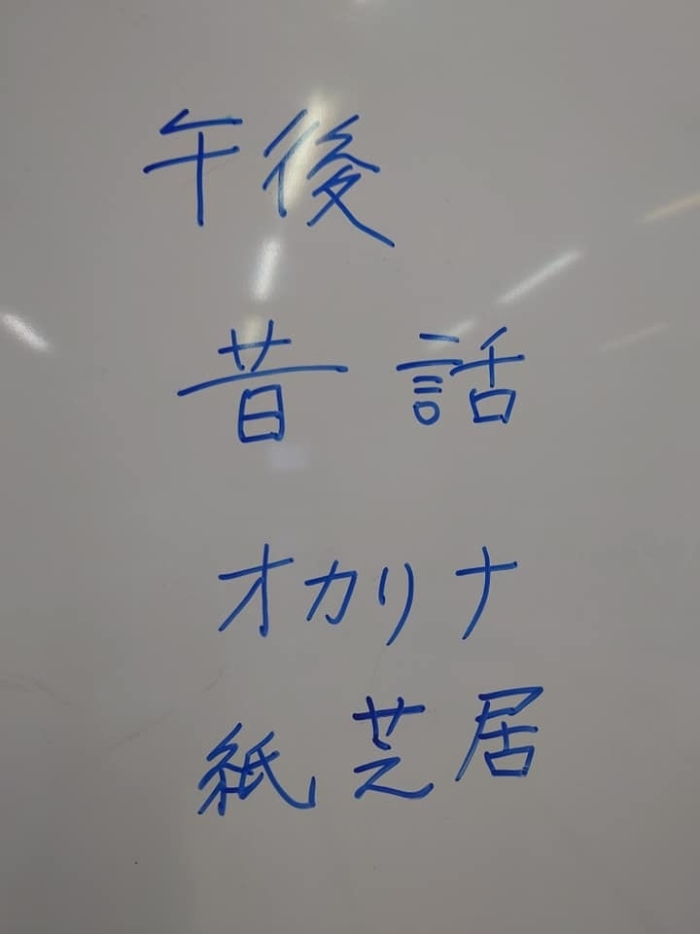 午後
昔 話
オカリナ
紙芝居